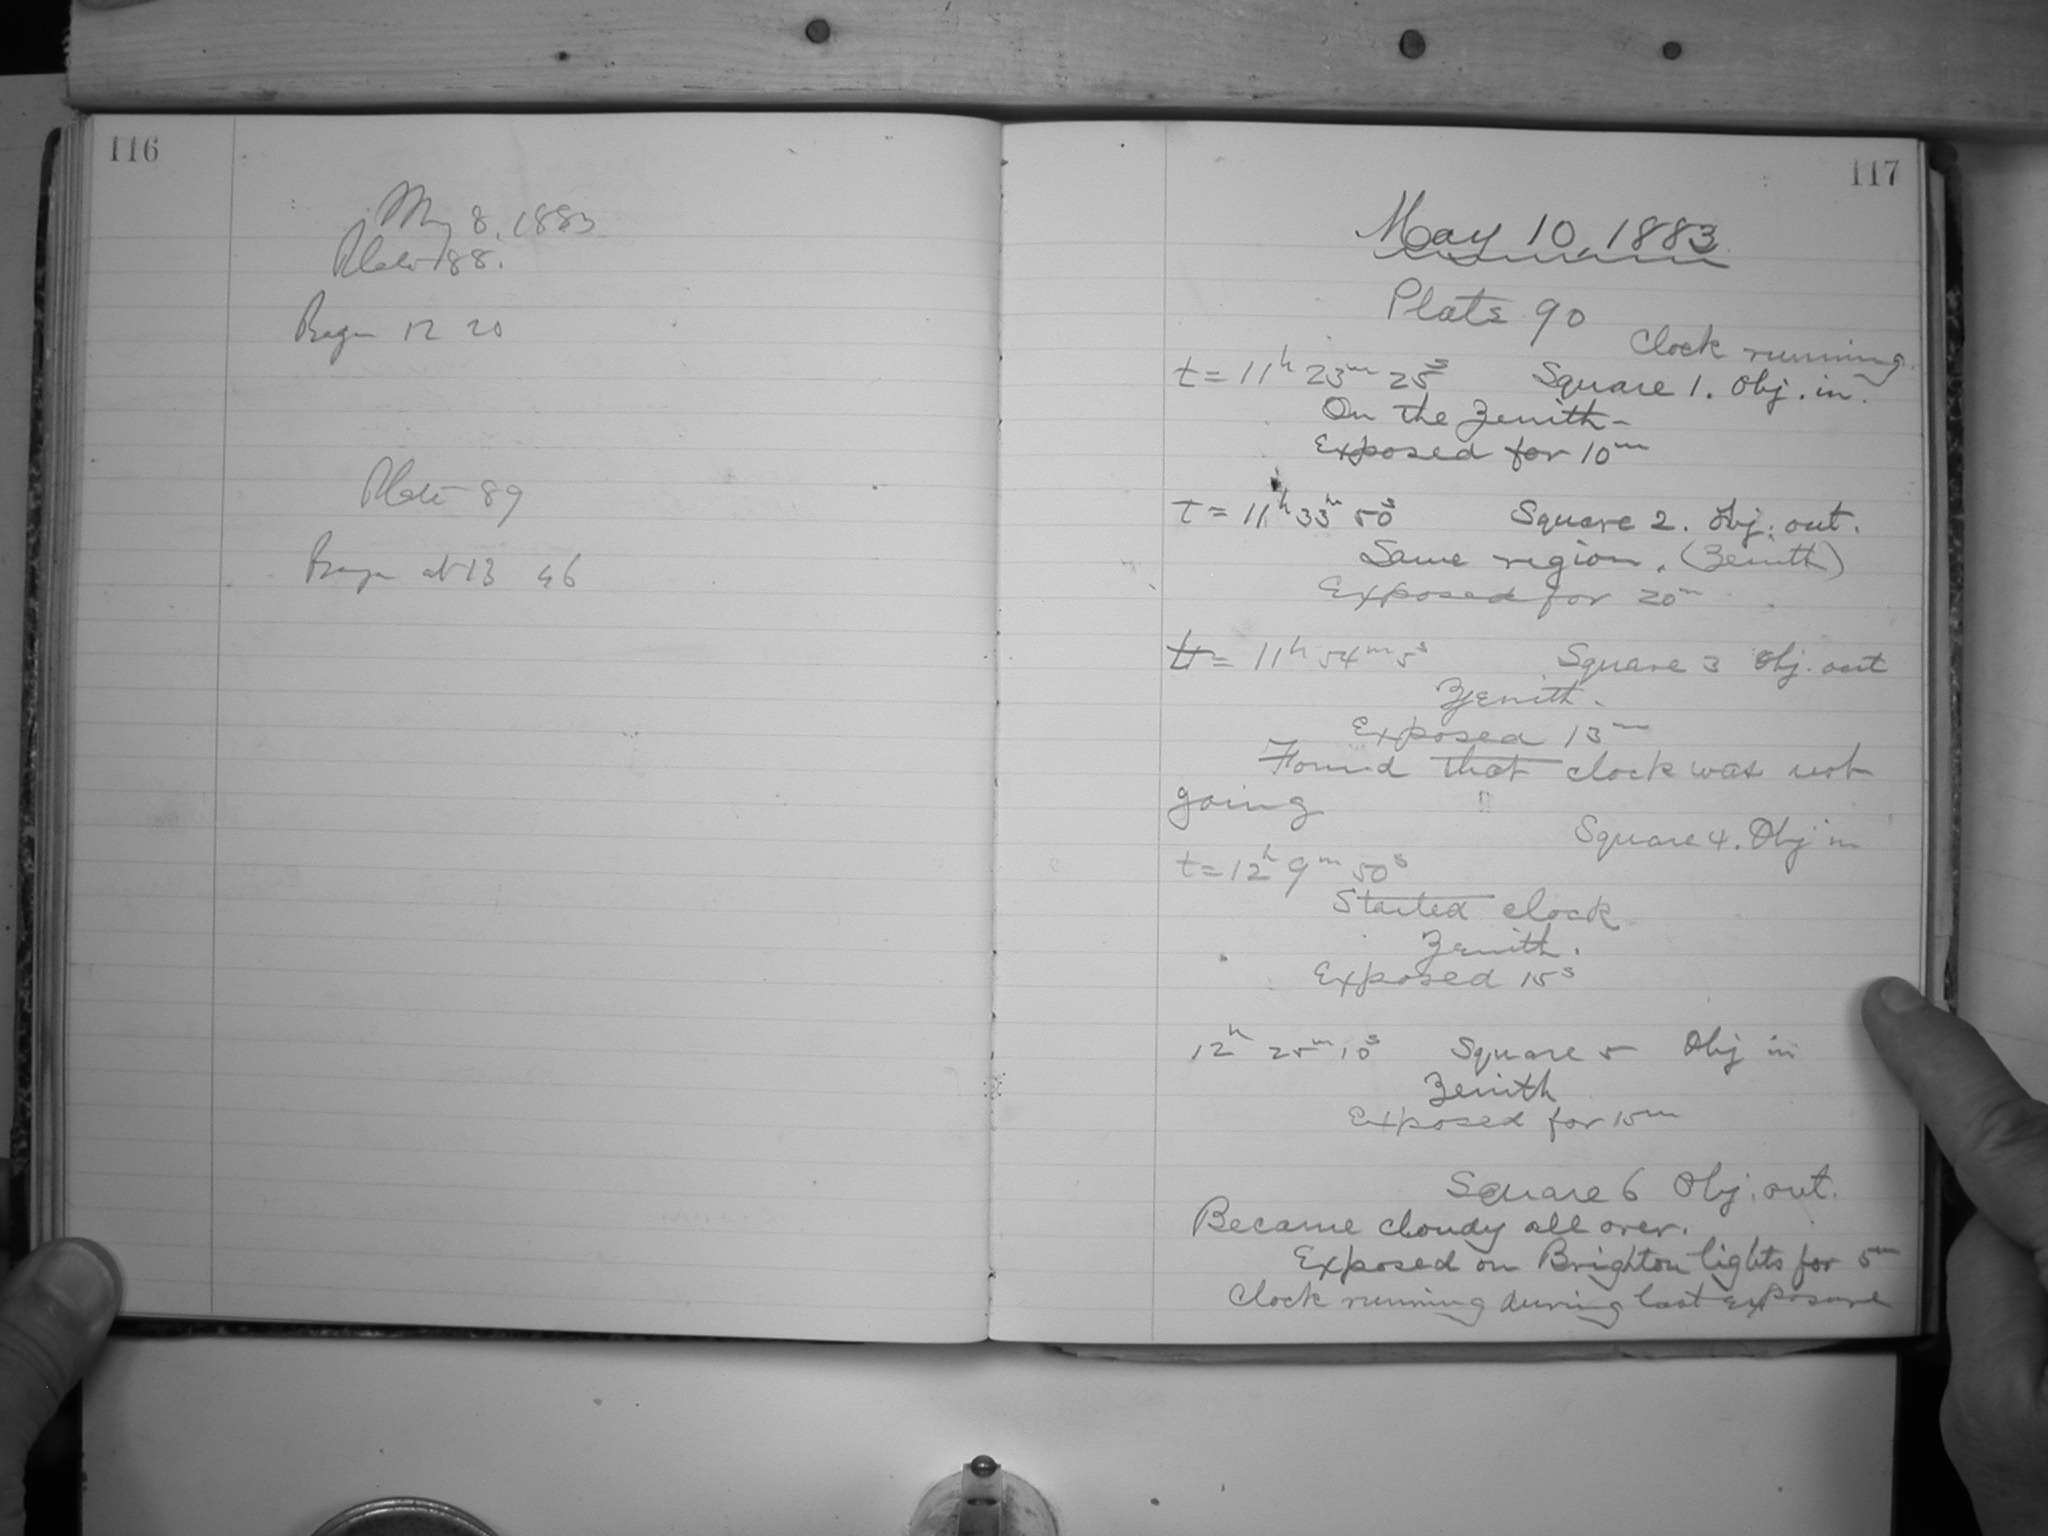 116
May 8, 1883
Plate 88.
Began 12 20
Plate 89
Began at 13 46
117
May 10, 1883.
Plate 90
Clock running.
t = 11h 23m 25s Square 1. Obj. in.
On the Zenith -
Exposed for 10m
t = 11h 33m 50s Square 2. Obj. out.
Same region. (Zenith)
Exposed for 20m
t = 11h 54m 5s Square 3 Obj. out
Zenith.
Exposed 13m
Found that clock was not
going
Square 4. Obj in
t = 12h 9m 50s
Started clock
Zenith.
Exposed 15s
12h 25m 10s Square 5 Obj in
Zenith
Exposed for 15m
Square 6 Obj. out.
Became cloudy all over.
Exposed on Brighton lights for 5m
Clock running during last exposure